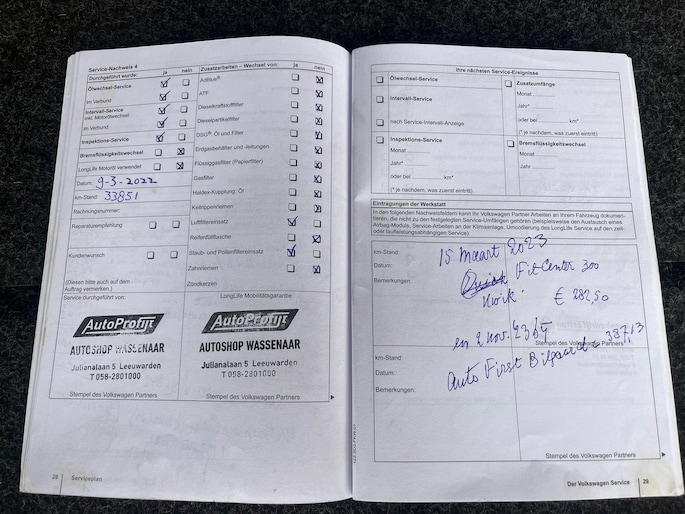 Service-Nachweis 4
Durchgeführt wurde: ja nein
Ölwechsel-Service
im Verbund
Intervall-Service
inkl. Motorölwechsel
im Verbund
Inspektions-Service
Bremsflüssigkeitswechsel
LongLife Motoröl verwendet
Datum: 9-3-2022
km-Stand: 33851
Rechnungsnummer:
Reparaturempfehlung
Kundenwunsch
(Diesen bitte auch auf dem
Auftrag vermerken.)
Service durchgeführt von:
AutoProfijt
AUTOSHOP WASSENAAR
Julianalaan 5 Leeuwarden
T 058-2801000
Stempel des Volkswagen Partners
Zusatzarbeiten – Wechsel von: ja nein
AdBlue®
ATF
Dieselkraftstofffilter
Dieselpartikelfilter
DSG®: Öl und Filter
Erdgasbehälter und -leitungen
Flüssiggasfilter (Papierfilter)
Gasfilter
Haldex-Kupplung: Öl
Keilrippenriemen
Luftfiltereinsatz
Reifenfüllflasche
Staub- und Pollenfiltereinsatz
Zahnriemen
Zündkerzen
LongLife Mobilitätsgarantie
AutoProfijt
AUTOSHOP WASSENAAR
Julianalaan 5 Leeuwarden
T 058-2801000
Stempel des Volkswagen Partners
28 Serviceplan
Ihre nächsten Service-Ereignisse
Ölwechsel-Service
Intervall-Service
nach Service-Intervall-Anzeige
Zusatzumfänge
Monat
Jahr*
oder bei km*
(* je nachdem, was zuerst eintritt)
Inspektions-Service
Monat
Jahr*
oder bei km*
(* je nachdem, was zuerst eintritt)
Bremsflüssigkeitswechsel
Monat
Jahr
Eintragungen der Werkstatt
In den folgenden Nachweisfeldern kann Ihr Volkswagen Partner Arbeiten an Ihrem Fahrzeug dokumen-
tieren, die nicht zu den festgelegten Service-Umfängen gehören (beispielsweise den Austausch eines
Airbag-Moduls, Service-Arbeiten an der Klimaanlage, Umcodierung des LongLife Service auf den zeit-
oder laufleistungsabhängigen Service).
km-Stand:
15 maart 2023
Datum:
Fit Center 300
Bemerkungen:
Kwik € 282,50
en 2 nov.
Stempel des Volkswagen Partners
km-Stand:
387,13
Datum:
Auto First
Bemerkungen:
Stempel des Volkswagen Partners
Der Volkswagen Service 29